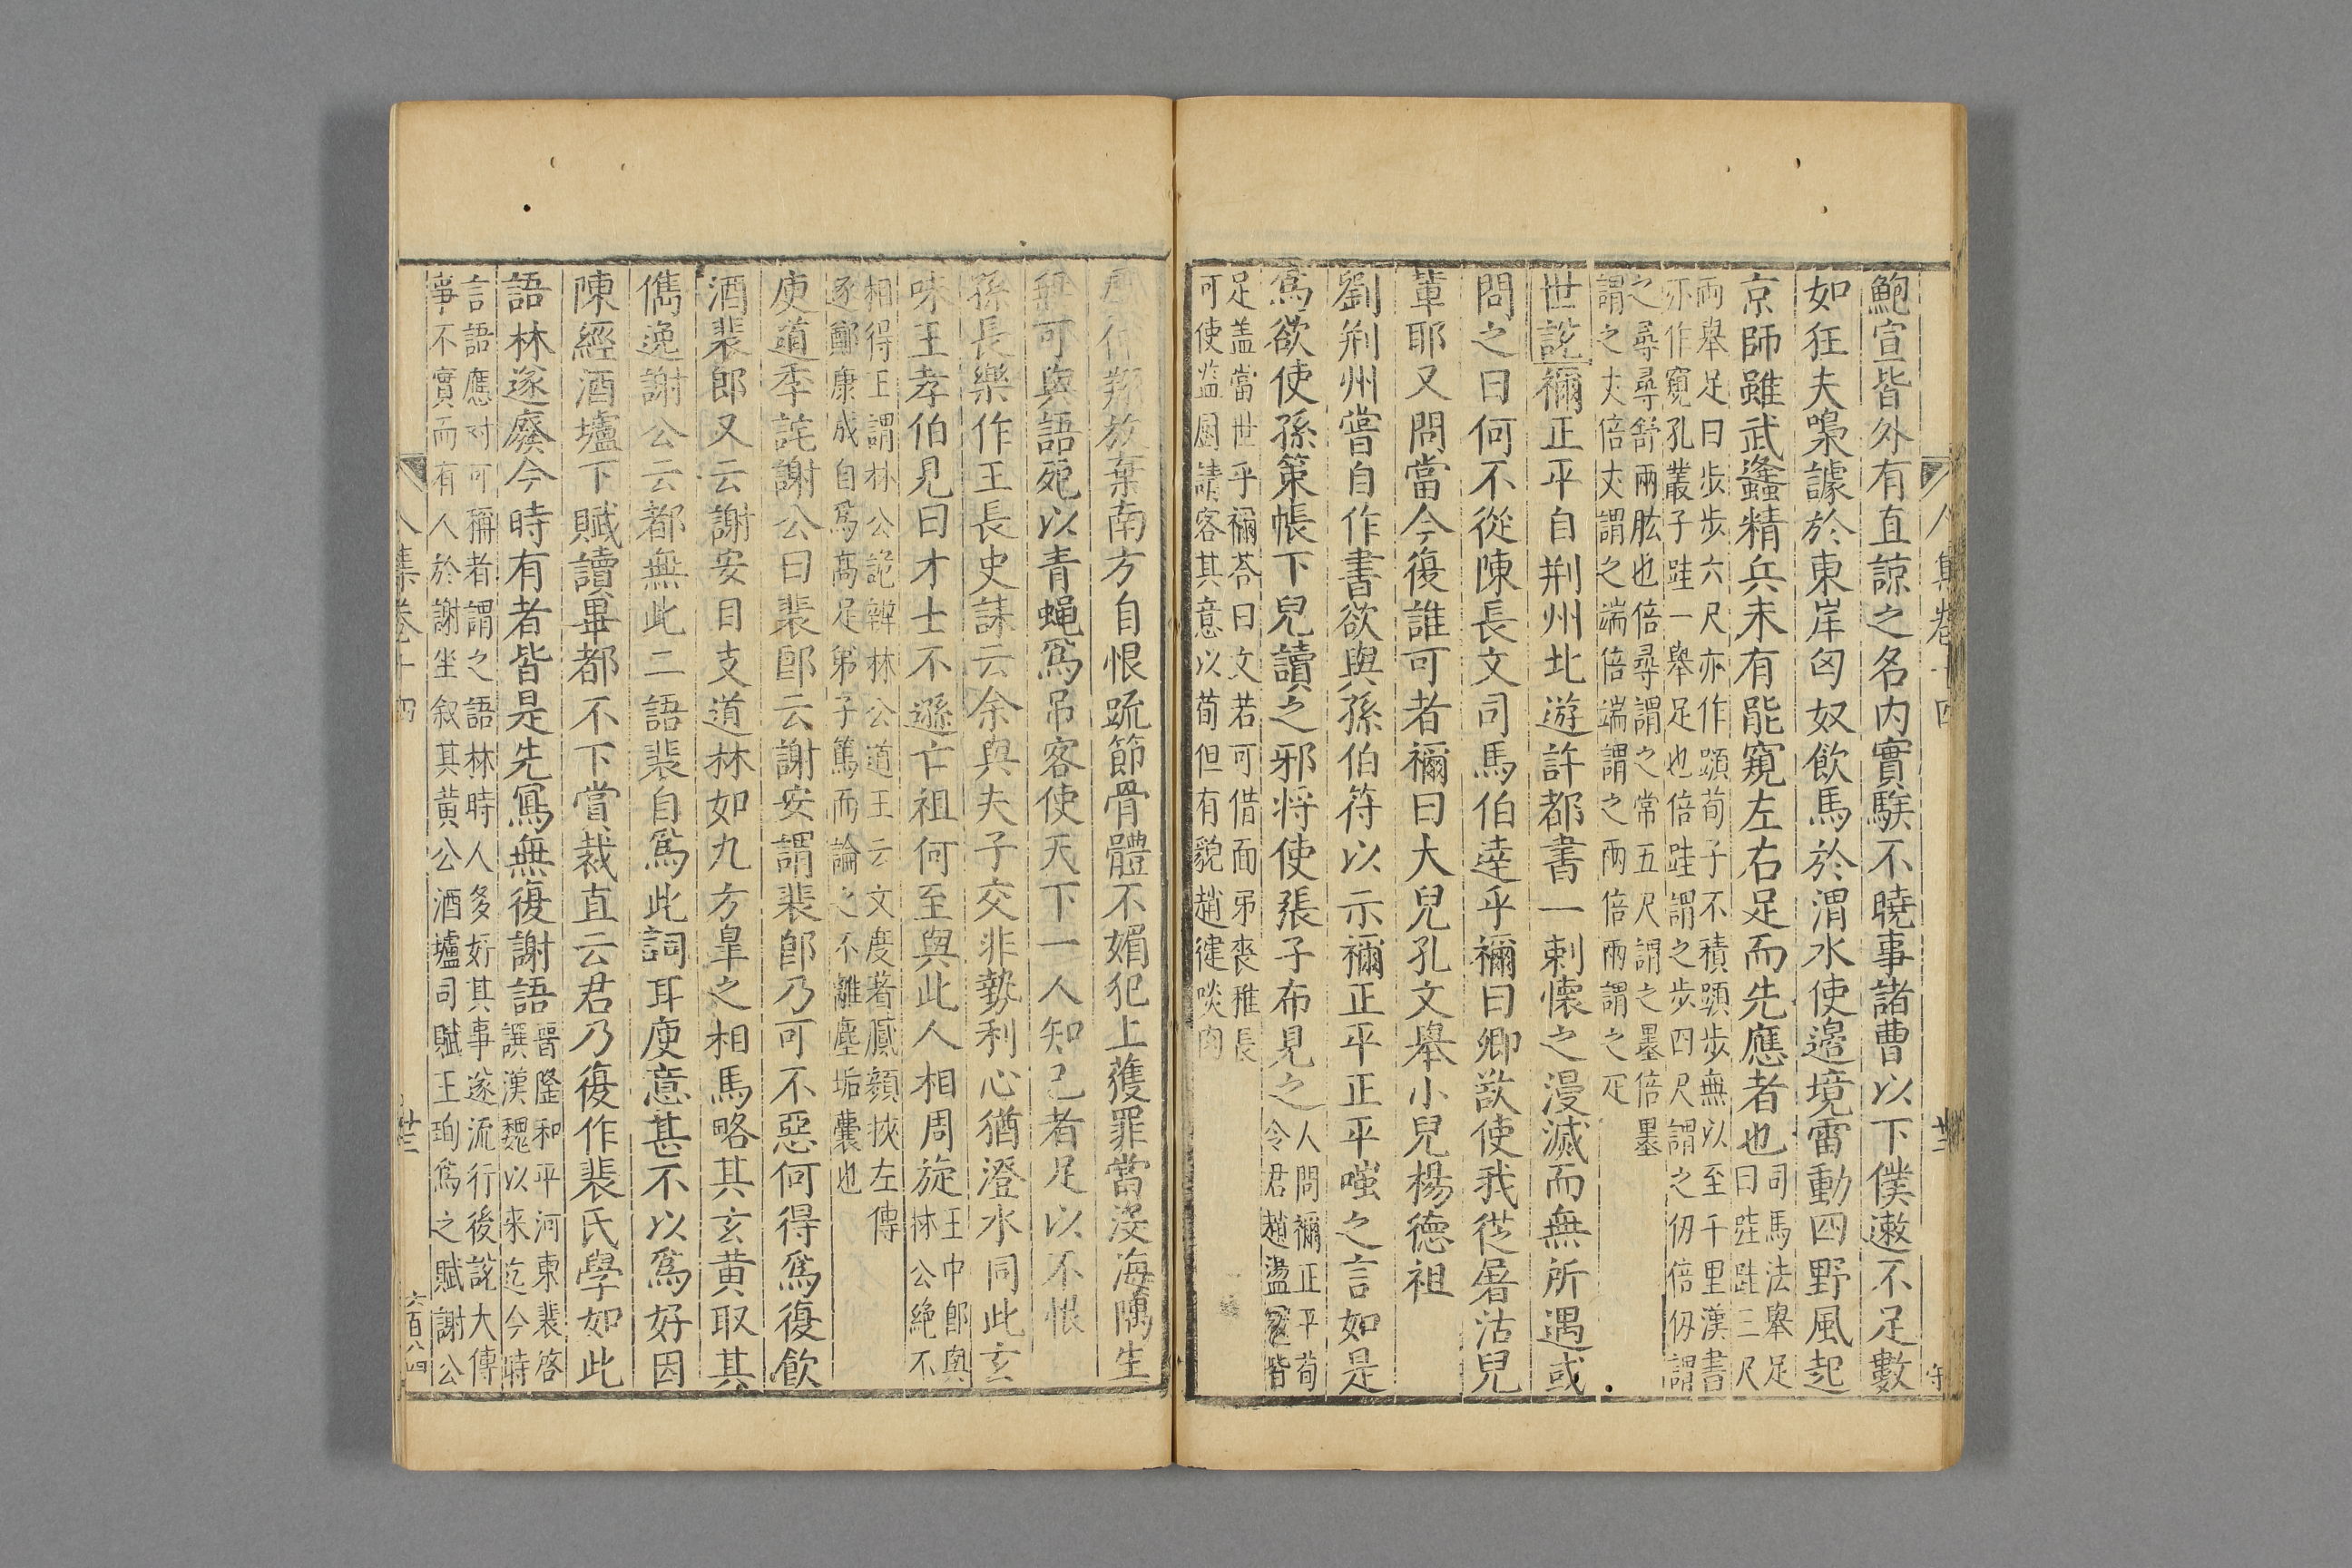 八集卷十四
鮑宣皆外有直諒之名內實騃不曉事諸曹以下僕遬不足數
如狂夫嘷謼於東岸匈奴飲馬於渭水使邉境雷動四野風起
京師雖武蠭精兵未有能窺左右足而先應者也司馬法舉足
曰跬跬三尺
兩舉足曰歩歩六尺亦作蹞荀子不積蹞歩無以至千里漢書
亦作窺孔叢子跬一舉足也倍跬謂之歩四尺謂之仞倍仞謂
之尋尋舒兩肱也倍尋謂之常五尺謂之墨倍墨
謂之丈倍丈謂之端倍端謂之兩倍兩謂之疋
世説禰正平自荆州北遊許都書一刺懷之漫滅而無所遇或
問之曰何不從陳長文司馬伯達乎禰曰卿欲使我從屠沽兒
輩耶又問當今復誰可者禰曰大兒孔文舉小兒楊德祖
劉荆州嘗自作書欲與孫伯符以示禰正平正平嗤之言如是
爲欲使孫策帳下兒讀之邪将使張子布見之人問禰正平荀
令君趙盪冦皆
足盖當世乎禰荅曰文若可借面弔喪稚長
可使监厨請客其意以荀但有貌趙健啖肉
虞仲翔放棄南方自恨䟽節骨體不媚犯上獲罪當沒海隅生
無可與語死以青蝇爲吊客使天下一人知己者足以不恨
孫長樂作王長史誄云余與夫子交非勢利心猶澄水同此玄
味王孝伯見曰才士不遜亡祖何至與此人相周旋王中郎與
林公絶不
相得王謂林公詭辯林公道王云文度著膩顔挾左傳
逐鄭康成自爲髙足弟子篤而論之不離塵垢囊也
庾道季詫謝公曰裴郎云謝安謂裴郎乃可不惡何得爲復飲
酒裴郎又云謝安目支道林如九方臯之相馬略其玄黄取其
儁逸謝公云都無此二語裴自爲此詞耳庾意甚不以爲好因
陳經酒壚下賦讀畢都不下賞裁直云君乃復作裴氏學如此
語林遂廢今時有者皆是先寫無復謝語晋隆和平河東裴啓
譔漢魏以来迄今時
言語應対可稱者謂之語林時人多好其事遂流行後説大傳
事不實而有人於謝坐叙其黄公酒壚司賦王珣爲之賦謝公
八集卷十四
六百八四